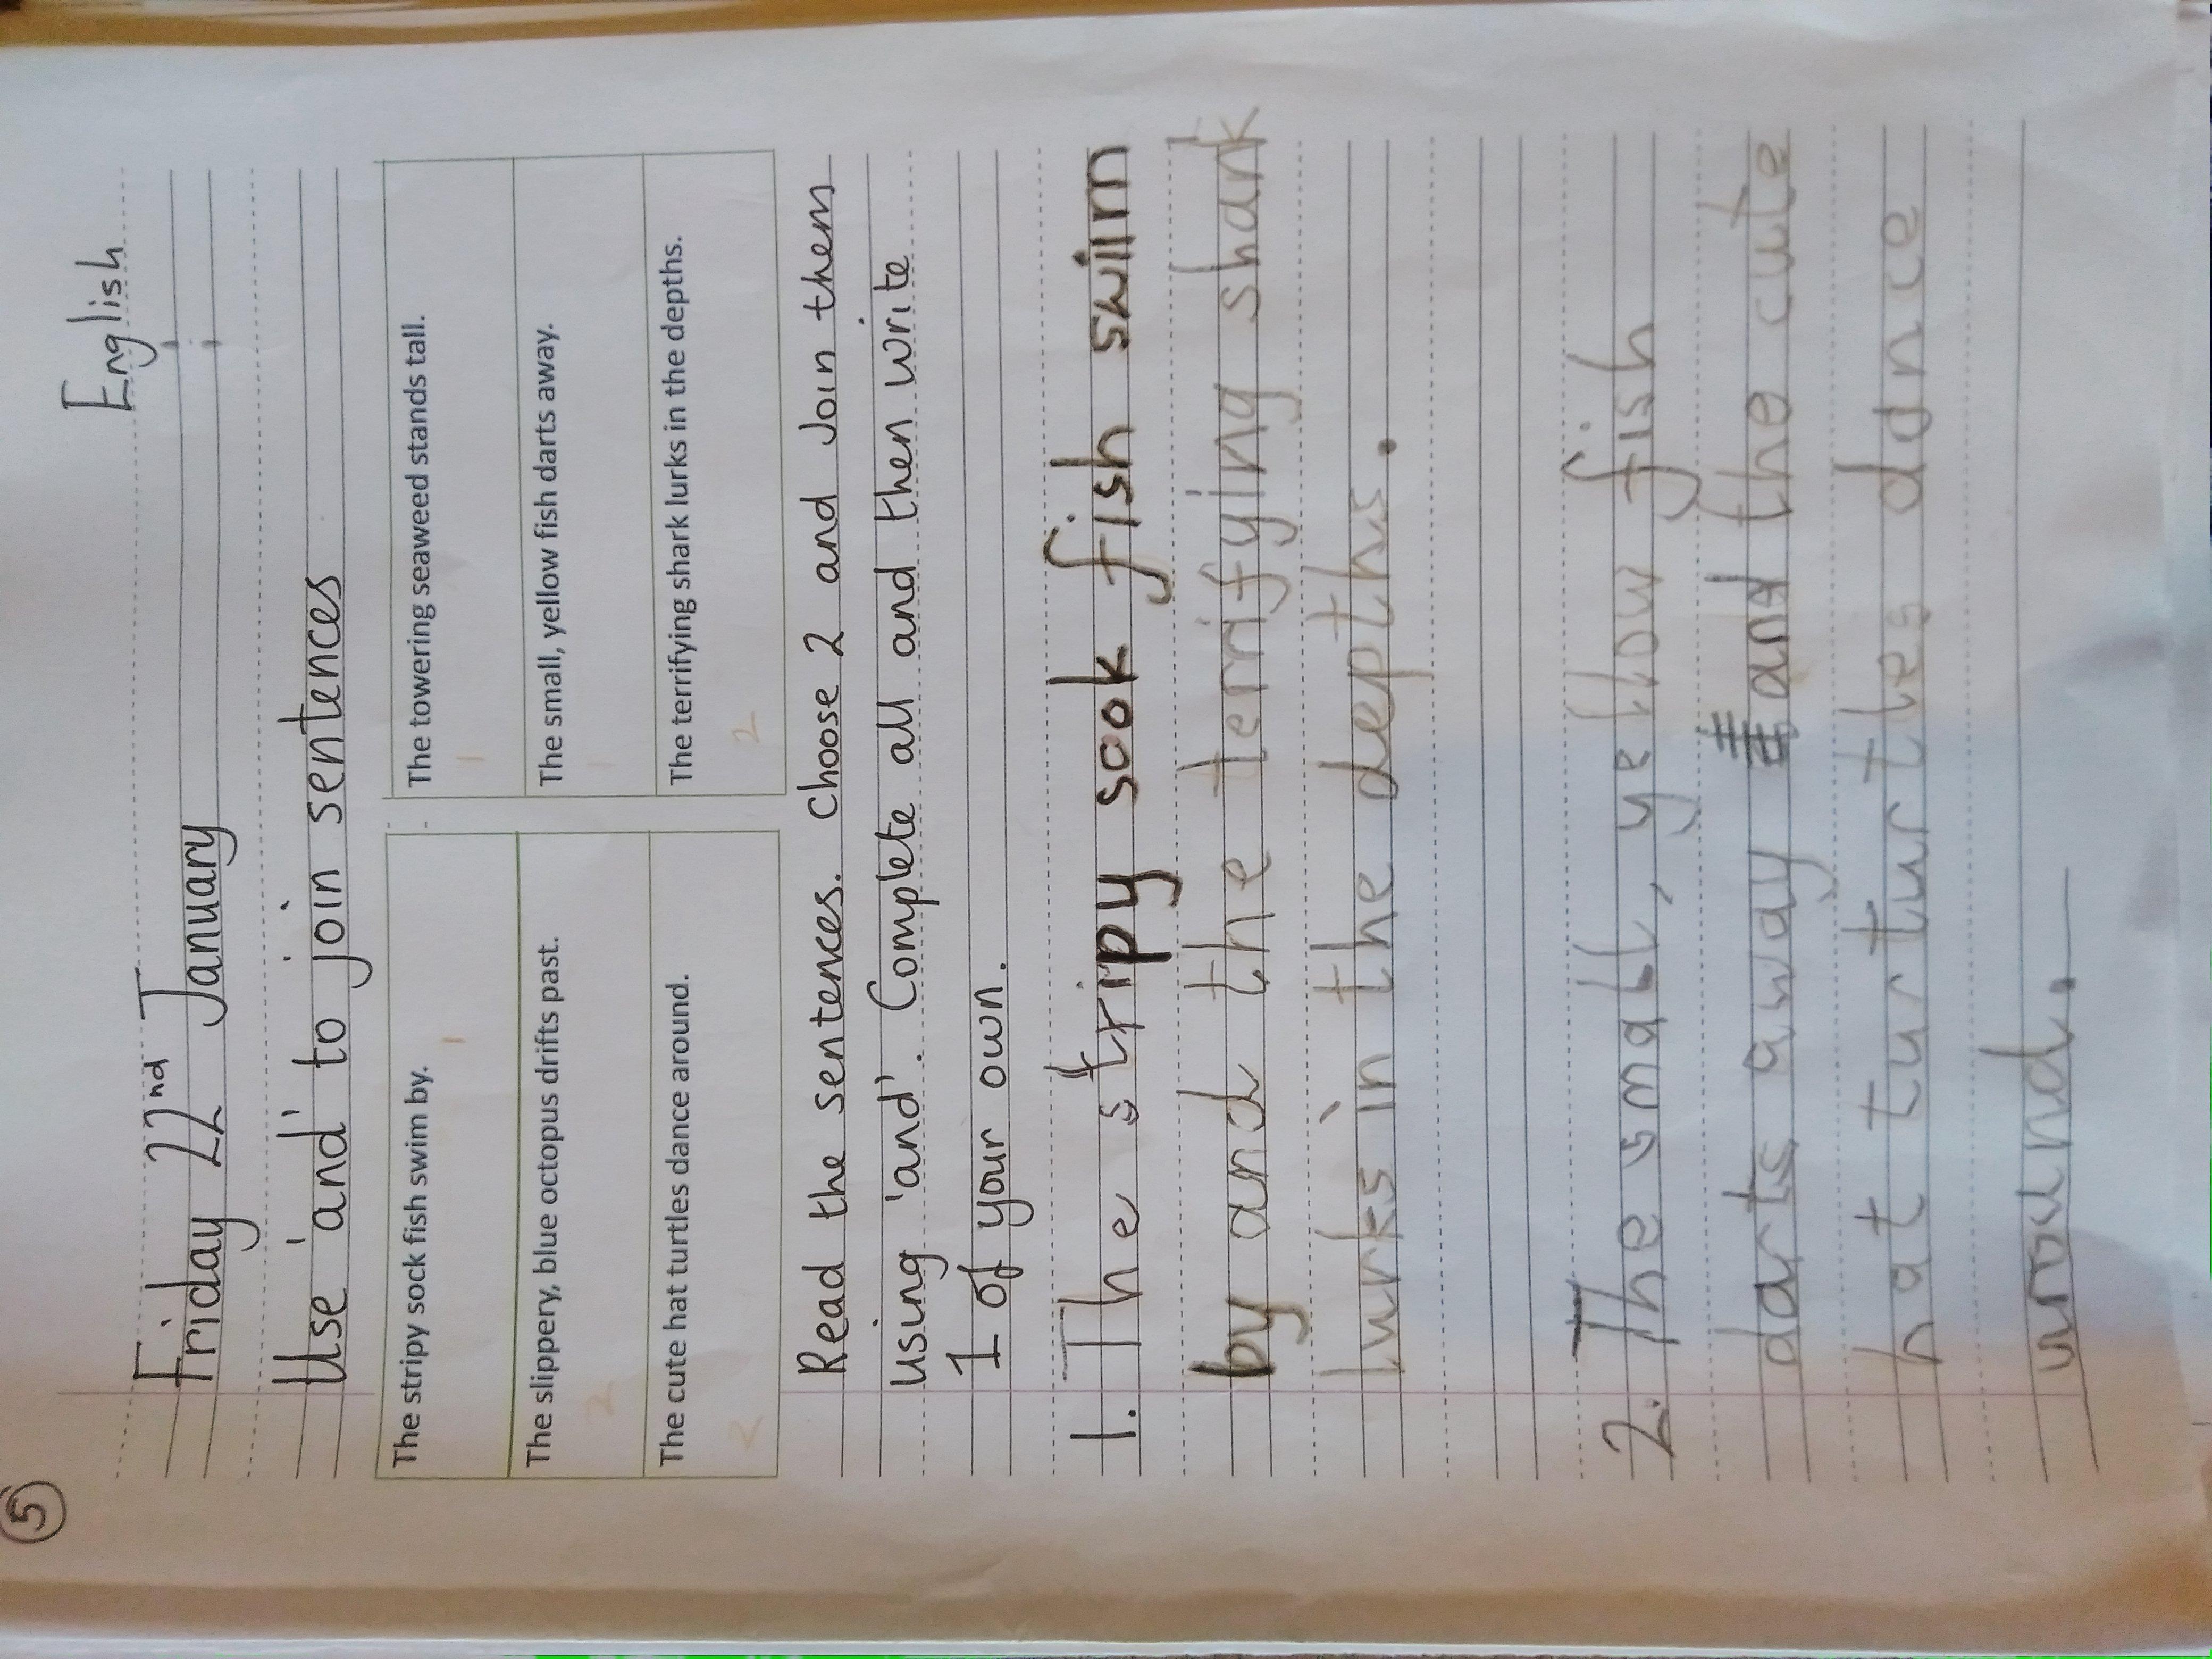 5
English
Friday 22nd January
Use 'and' to join sentences
The stripy sock fish swim by.
1
The slippery, blue octopus drifts past.
2
The cute hat turtles dance around.
2
The towering seaweed stands tall.
1
The small, yellow fish darts away.
1
The terrifying shark lurks in the depths.
2
Read the sentences. Choose 2 and Join them
using 'and'. Complete all and then write
1 of your own.
1. The stripy sook fish swim
by and the terrifying shark
lurks in the depths.
2. The small, yellow fish
darts away and the cute
hat turturtles dance
uround.